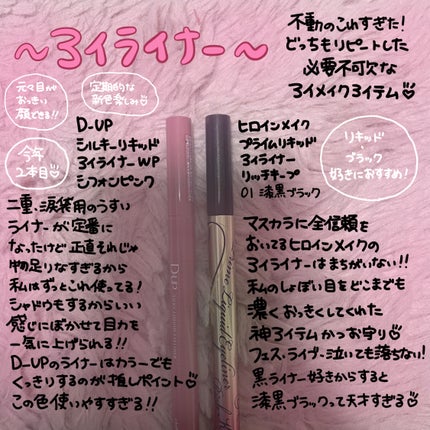 ～アイライナー～
不動のこれすぎた！
どっちもリピートした
必要不可欠な
アイメイクアイテム
元々目が
おっきい
顔できる!!
定期的な
新色楽しみ
今年
2本目
D-UP
シルキーリキッド
アイライナーWP
シフォンピンク
ヒロインメイク
プライムリキッド
アイライナー
リッチキープ
01 漆黒ブラック
リキッド
ブラック
好きにおすすめ!
二重、涙袋用のうすい
ライナーが定番に
なったけど正直それじゃ
物足りなすぎるから
私はずっとこれ使ってる!
シャドウもするからいい
感じにぼかせて目力を
一気に上げられる!!
D-UPのライナーはカラーでも
くっきりするのが推しポイント
この色使いやすすぎる!!
マスカラに全信頼を
おいてるヒロインメイクの
アイライナーはまちがいない!!
私のしょぼい目をどこまでも
濃くおっきくしてくれた
神アイテムかつお守り
フェス・ライブ・泣いても落ちない!
黒ライナー好きからすると
漆黒ブラックって天才すぎる
D-UP
Prime Liquid Eyeliner